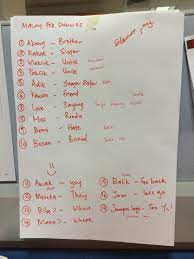 MALAY FOR DUMMIES
① Abang - Brother
② Kakak - Sister
③ Makcik - Untie
④ Pakcik - Uncle
⑤ Adik -
⑥ Kawan - Friend
⑦ Love - Sayang
⑧ Miss - Rindu
⑨ Benci - Hate
⑩ Bosan - Bored
⑪ Awak - you
⑫ Mereka - They
⑬ Bila? - When
⑭ Mana? - Where
⑮ Balik - Go back
⑯ Jalan - let's go
⑰ Jumpa lagi - See Ya!